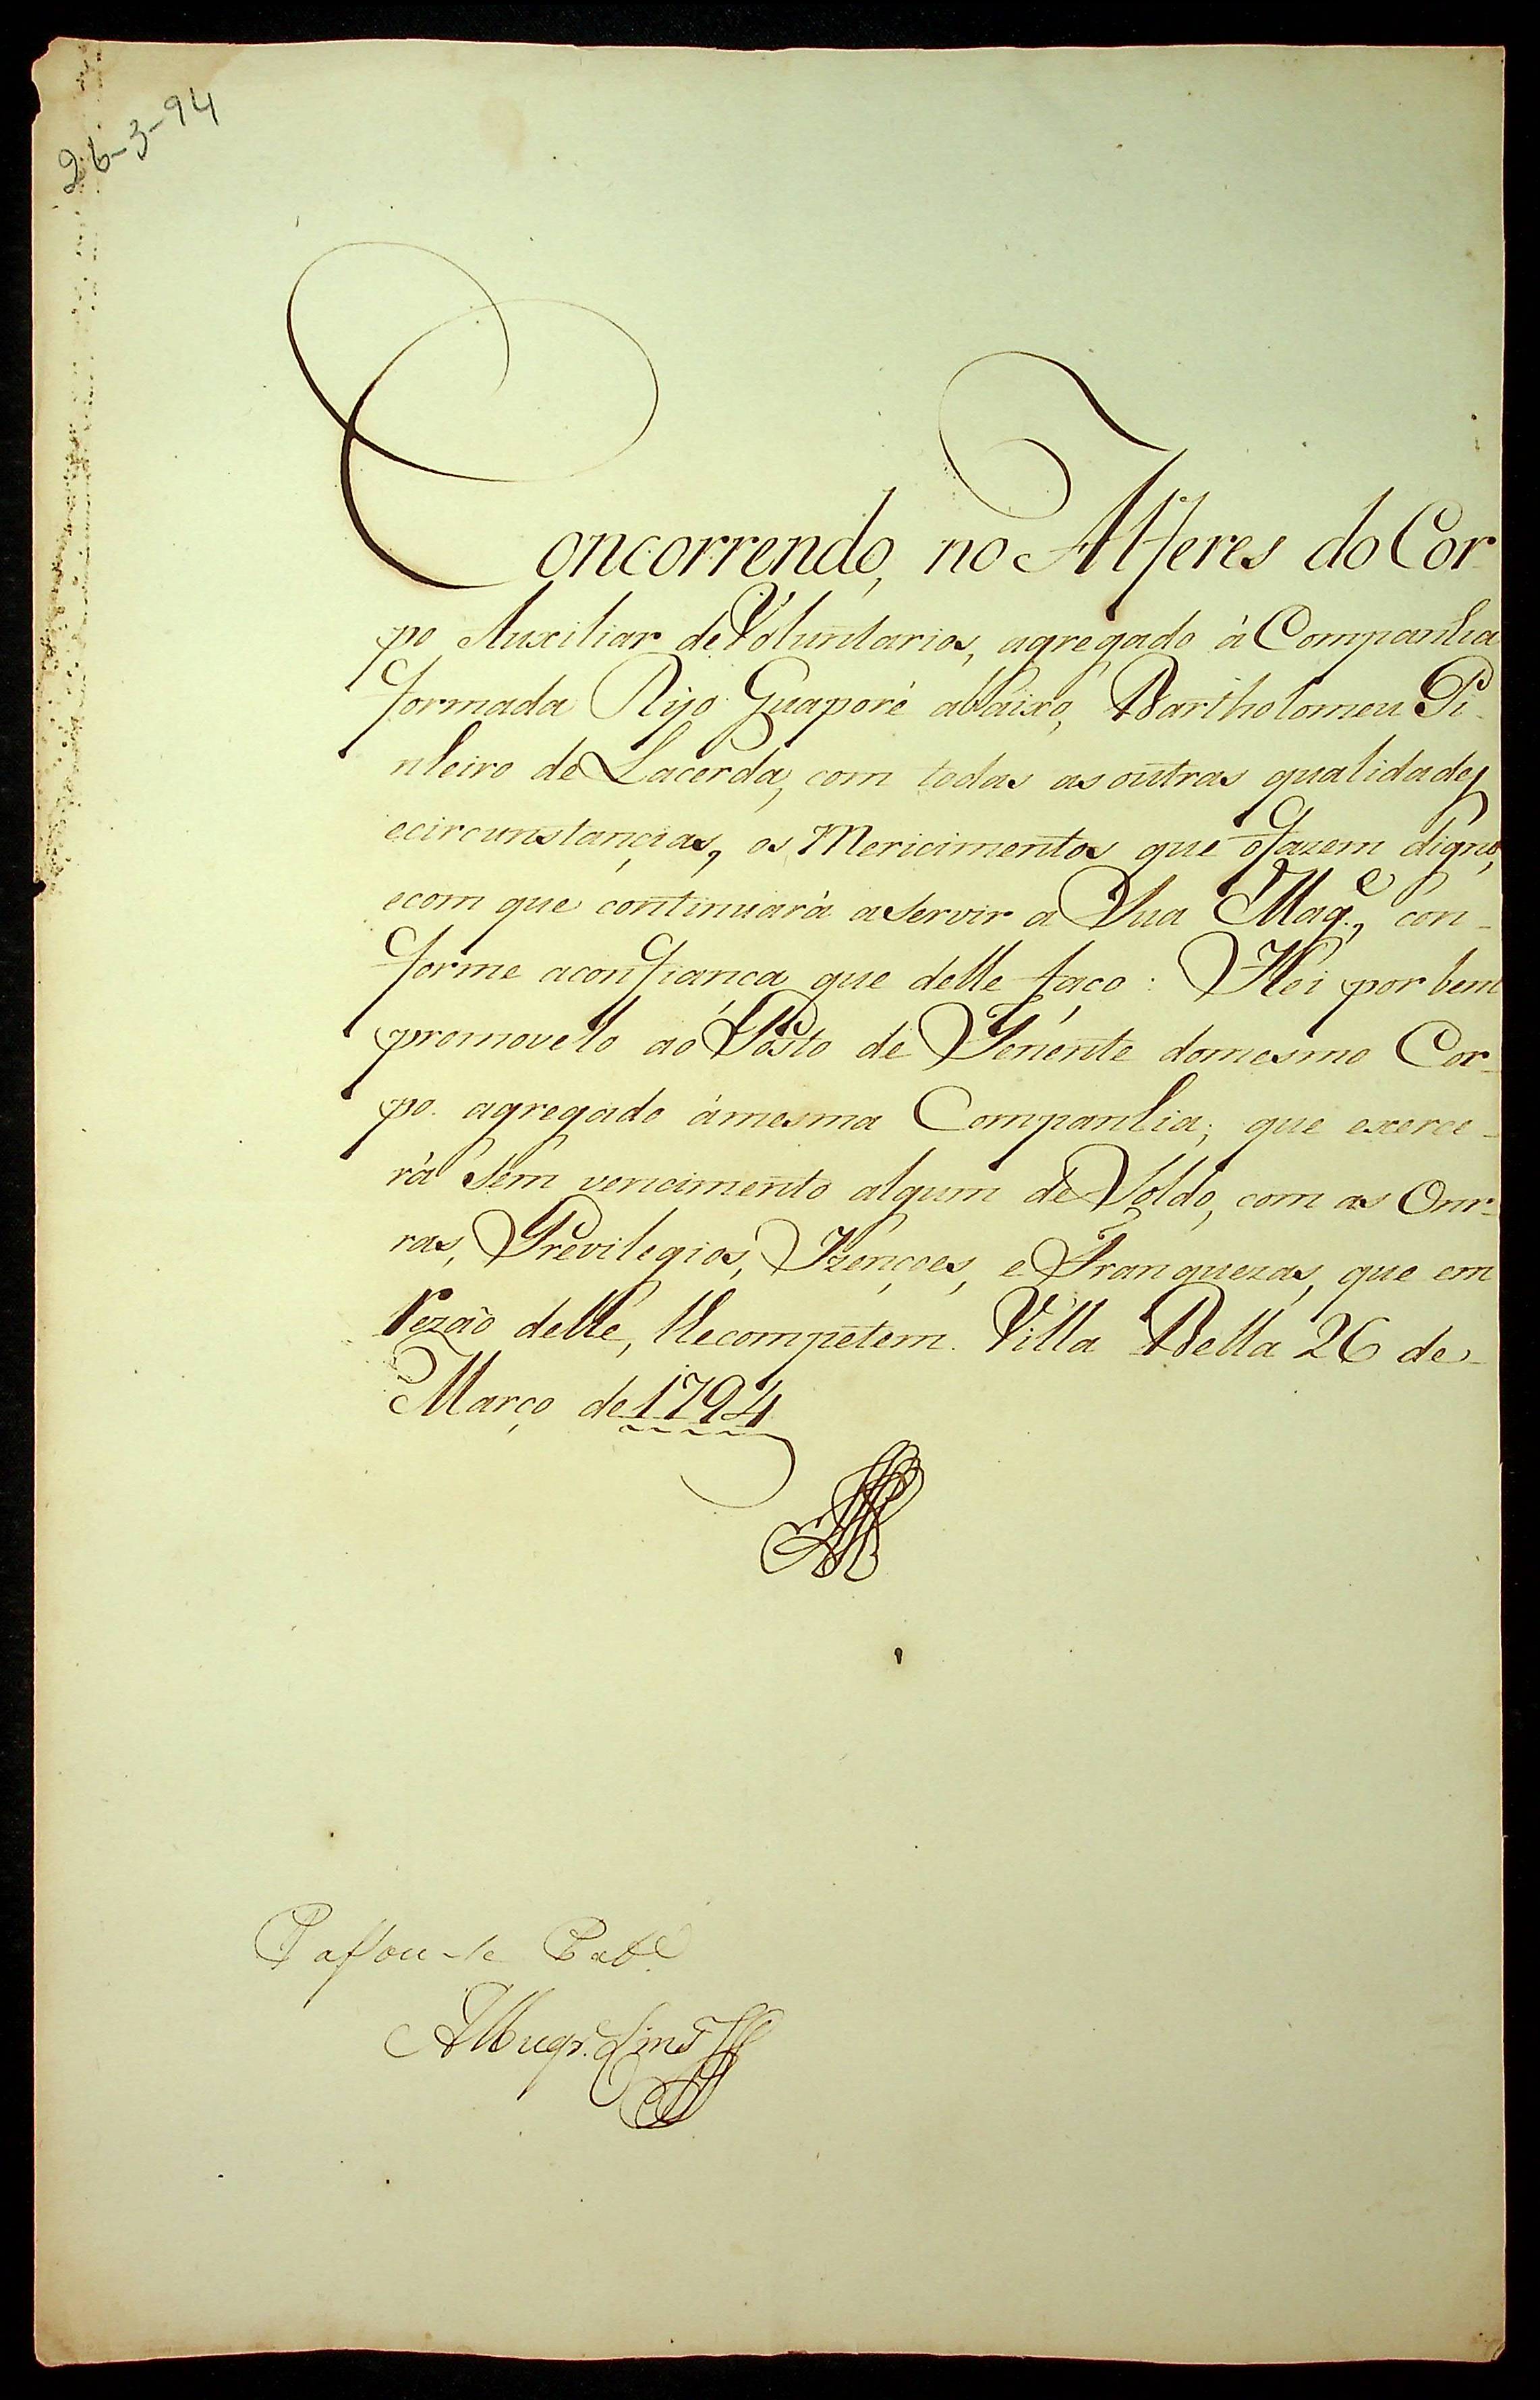 26-3-94
Concorrendo, no Alferes do Cor-
po Auxiliar de Voluntarios, agregado à Companhia
formada Rijo Guaporé abaixo, Bartholomeu Pi-
nheiro de Lacerda, com todas as outras qualidades
e circunstançias, os Mericimentos que o fazem digno,
e com que continuarà a servir a Sua Mag.e, con-
forme a confiança que delle faço: Hei por bem
promovelo ao Posto de Tenente do mesmo Cor-
po agregado à mesma Companhia; que exerce-
rà sem vencimento algum de Soldo, com as Onr-
ras, Previlegios, Izençoes, e Franquezas, que em
rezão delle, lhe competem. Villa Bella 26 de
Março de 1794
Passou-se Pat.e
Albuqr. Lins